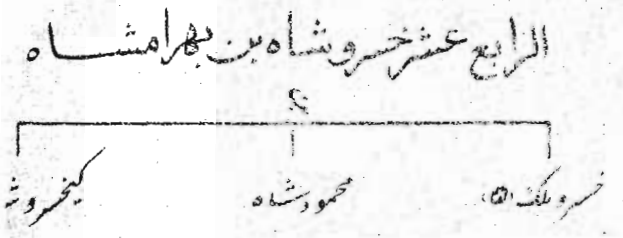 الرابع عشر خسروشاه بن بهرامشاه
خسرو ملك (١٥) محمودشاه كيخسرو